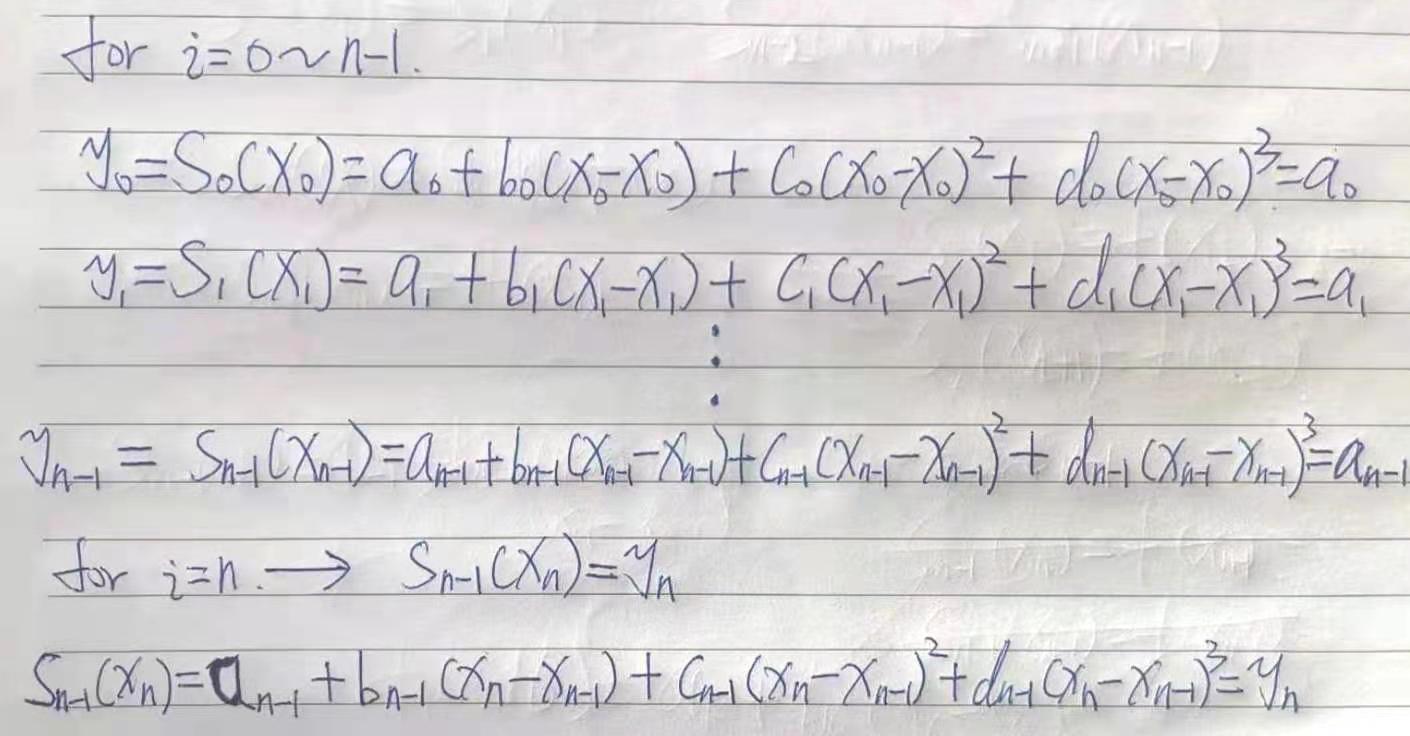 for i=0~n-1.
y₀=S₀(x₀)=a₀+b₀(x₀-x₀)+c₀(x₀-x₀)²+d₀(x₀-x₀)³=a₀
y₁=S₁(x₁)=a₁+b₁(x₁-x₁)+c₁(x₁-x₁)²+d₁(x₁-x₁)³=a₁
⋮
yₙ₋₁=Sₙ₋₁(xₙ₋₁)=aₙ₋₁+bₙ₋₁(xₙ₋₁-xₙ₋₁)+cₙ₋₁(xₙ₋₁-xₙ₋₁)²+dₙ₋₁(xₙ₋₁-xₙ₋₁)³=aₙ₋₁
for i=n.→ Sₙ₋₁(xₙ)=yₙ
Sₙ₋₁(xₙ)=aₙ₋₁+bₙ₋₁(xₙ-xₙ₋₁)+cₙ₋₁(xₙ-xₙ₋₁)²+dₙ₋₁(xₙ-xₙ₋₁)³=yₙ